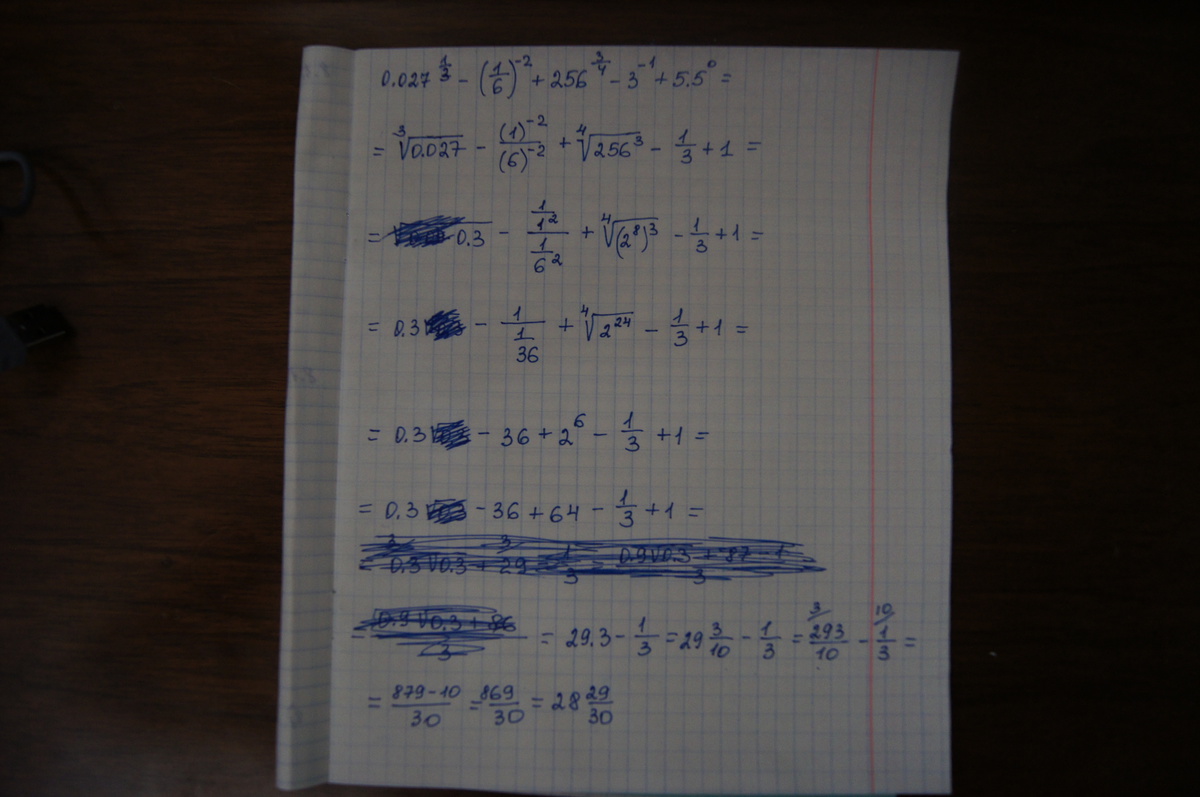 0.027^{1/3} - (1/6)^{-2} + 256^{3/4} - 3^{-1} + 5.5^0 =
= ∛0.027 - (1)^{-2}/(6)^{-2} + ∜256^3 - 1/3 + 1 =
= 0.3 - (1/1^2)/(1/6^2) + ∜(2^8)^3 - 1/3 + 1 =
= 0.3 - 1/(1/36) + ∜2^{24} - 1/3 + 1 =
= 0.3 - 36 + 2^6 - 1/3 + 1 =
= 0.3 - 36 + 64 - 1/3 + 1 =
= 29.3 - 1/3 = 29 3/10 - 1/3 = 3/ 293/10 - 10/ 1/3 =
= 879-10/30 = 869/30 = 28 29/30